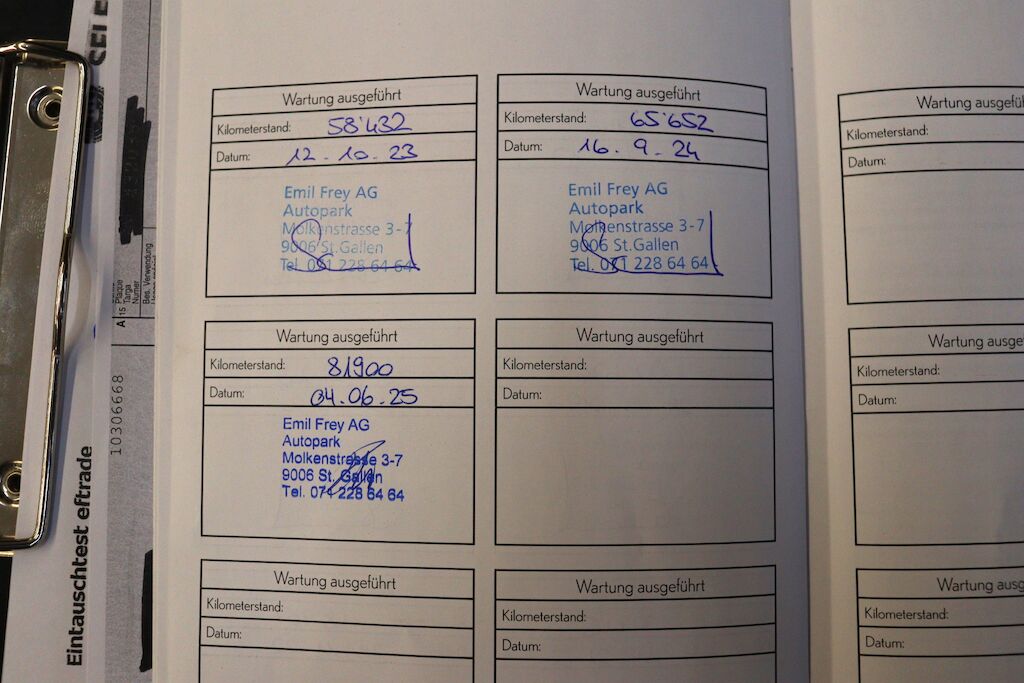 Wartung ausgeführt
Kilometerstand: 58'432
Datum: 12.10.23
Emil Frey AG
Autopark
Molkenstrasse 3-7
9006 St.Gallen
Tel. 071 228 64 64
Wartung ausgeführt
Kilometerstand: 65'652
Datum: 16.9.24
Emil Frey AG
Autopark
Molkenstrasse 3-7
9006 St.Gallen
Tel. 071 228 64 64
Wartung ausgeführt
Kilometerstand: 81900
Datum: 04.06.25
Emil Frey AG
Autopark
Molkenstrasse 3-7
9006 St. Gallen
Tel. 071 228 64 64
Wartung ausgeführt
Kilometerstand:
Datum:
Wartung ausgeführt
Kilometerstand:
Datum:
Wartung ausgeführt
Kilometerstand:
Datum:
Wartung ausgefü
Kilometerstand:
Datum:
Wartung ausge
Kilometerstand:
Datum:
Wartung ausg
Kilometerstand:
Datum:
Eintauschtest eftrade
10306668
A
15
Plaque
Targa
Numer
Bes. Verwendung